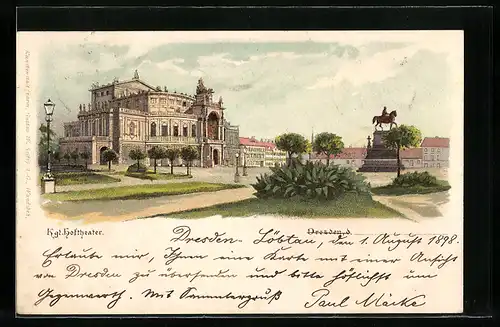 Kgl. Hoftheater.
Dresden, d.
Dresden-Löbtau, den 1. August 1898.
Erlaube mir, Ihnen eine Karte mit einer Ansicht
von Dresden zu übersenden und bitte höflichst um
Gegenwerth. Mit Sammlergruß
Paul Macke